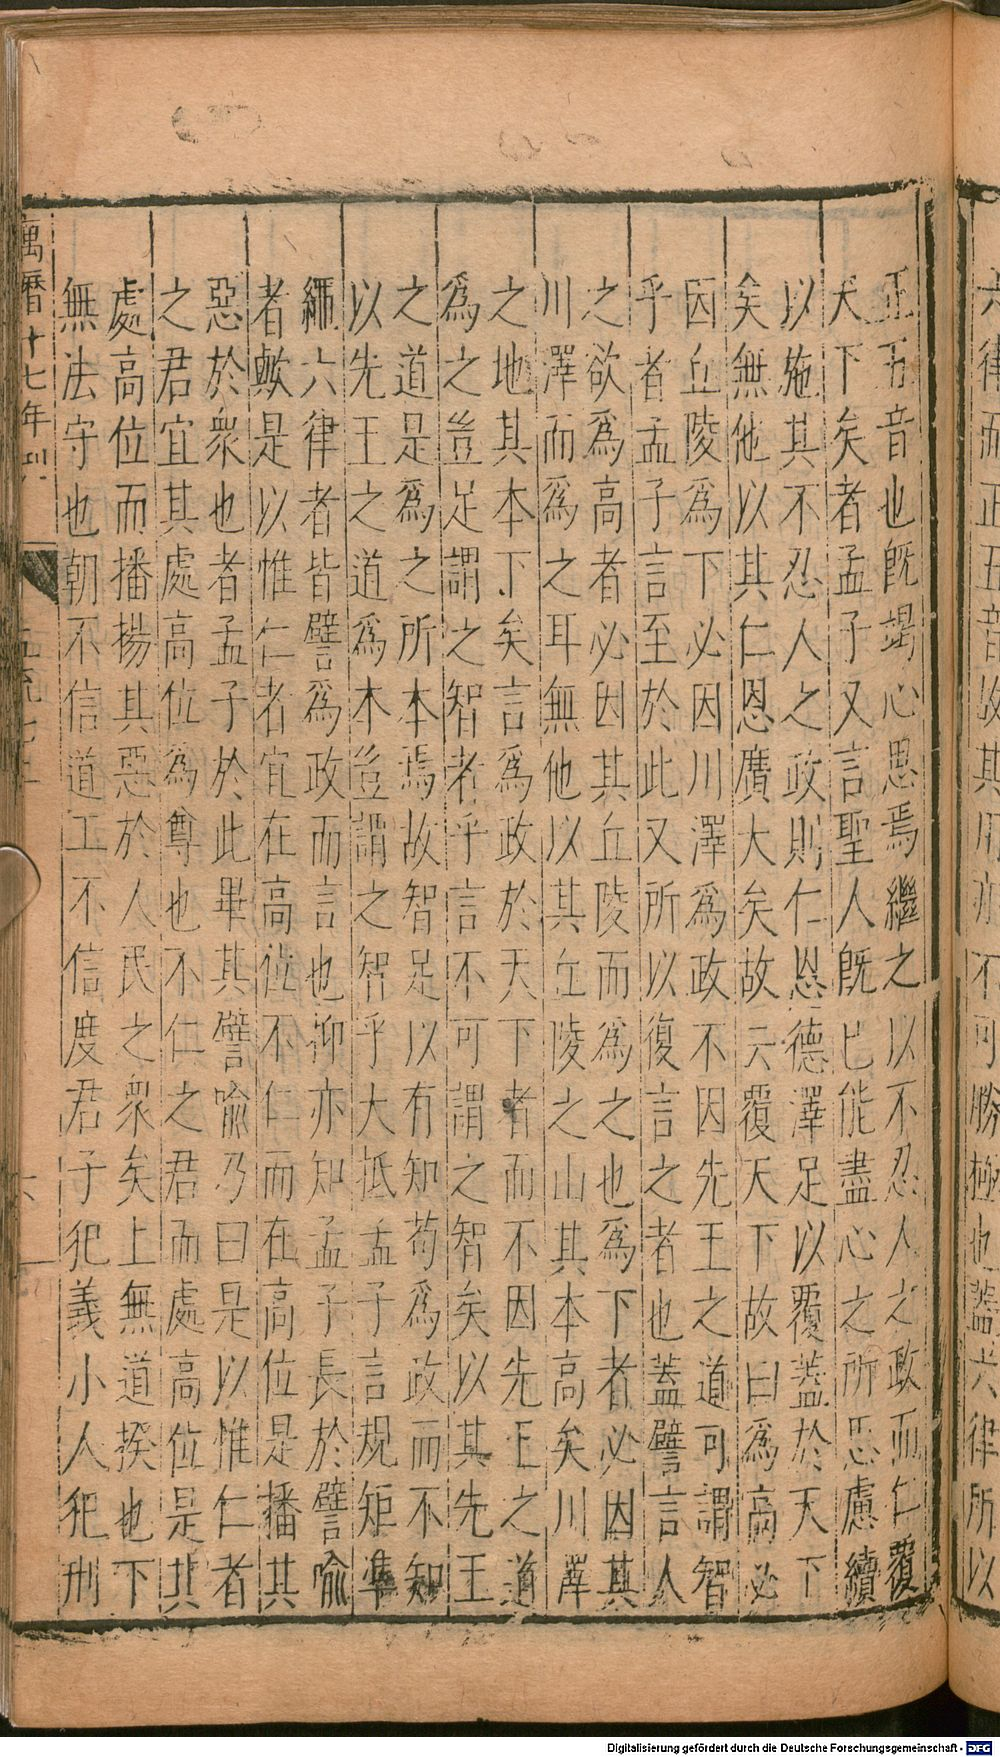 六律而正五音故其用亦不可勝極也蓋六律所以
正五音也旣竭心思焉繼之以不忍人之政而仁覆
天下矣者孟子又言聖人旣已能盡心之所思慮續
以施其不忍人之政則仁恩德澤足以覆蓋於天下
矣無他以其仁恩廣大矣故云覆天下故曰爲高必
因丘陵爲下必因川澤爲政不因先王之道可謂智
乎者孟子言至於此又所以復言之者也蓋譬言人
之欲爲高者必因其丘陵而爲之也爲下者必因其
川澤而爲之耳無他以其丘陵之山其本高矣川澤
之地其本下矣言爲政於天下者而不因先王之道
爲之豈足謂之智者乎言不可謂之智矣以其先王
之道是爲之所本焉故智足以有知苟爲政而不知
以先王之道爲本豈謂之智乎大抵孟子言規矩準
繩六律者皆譬爲政而言也抑亦知孟子長於譬喻
者歟是以惟仁者宜在高位不仁而在高位是播其
惡於衆也者孟子於此畢其譬喻乃曰是以惟仁者
之君宜其處高位爲尊也不仁之君而處高位是其
處高位而播揚其惡於人民之衆矣上無道揆也下
無法守也朝不信道工不信度君子犯義小人犯刑
萬曆十七年刊
六
Digitalisierung gefördert durch die Deutsche Forschungsgemeinschaft - DFG